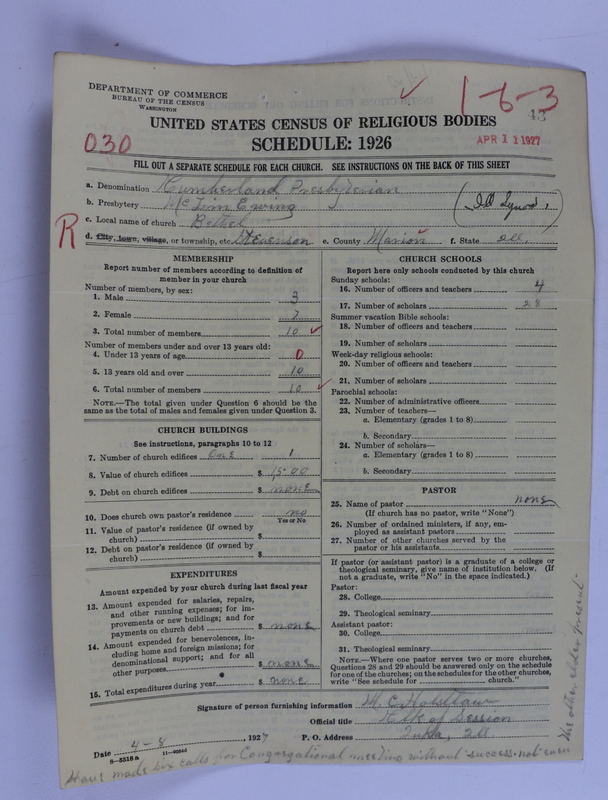 DEPARTMENT OF COMMERCE
BUREAU OF THE CENSUS
WASHINGTON
1-6-3
43
UNITED STATES CENSUS OF RELIGIOUS BODIES
030
SCHEDULE: 1926
APR 11 1927
FILL OUT A SEPARATE SCHEDULE FOR EACH CHURCH. SEE INSTRUCTIONS ON THE BACK OF THIS SHEET
a. Denomination Cumberland Presbyterian
b. Presbytery McLinn Ewing
c. Local name of church Bethel
R
d. City, town, village, or township, etc. Stevenson e. County Marion f. State Ill.
MEMBERSHIP
Report number of members according to definition of
member in your church
Number of members, by sex:
1. Male 3
2. Female 7
3. Total number of members 10
Number of members under and over 13 years old:
4. Under 13 years of age 0
5. 13 years old and over 10
6. Total number of members 10
NOTE.—The total given under Question 6 should be the
same as the total of males and females given under Question 3.
CHURCH BUILDINGS
See instructions, paragraphs 10 to 12
7. Number of church edifices One 1
8. Value of church edifices $ 1500
9. Debt on church edifices $ none
10. Does church own pastor's residence? no
Yes or No
11. Value of pastor's residence (if owned by
church) $
12. Debt on pastor's residence (if owned by
church) $
EXPENDITURES
Amount expended by your church during last fiscal year
13. Amount expended for salaries, repairs,
and other running expenses; for im-
provements or new buildings; and for
payments on church debt $ none
14. Amount expended for benevolences, in-
cluding home and foreign missions; for
denominational support; and for all
other purposes $ none
15. Total expenditures during year $ none
CHURCH SCHOOLS
Report here only schools conducted by this church
Sunday schools:
16. Number of officers and teachers 4
17. Number of scholars 28
Summer vacation Bible schools:
18. Number of officers and teachers
19. Number of scholars
Week-day religious schools:
20. Number of officers and teachers
21. Number of scholars
Parochial schools:
22. Number of administrative officers
23. Number of teachers—
a. Elementary (grades 1 to 8)
b. Secondary
24. Number of scholars—
a. Elementary (grades 1 to 8)
b. Secondary
PASTOR
25. Name of pastor none
(If church has no pastor, write "None")
26. Number of ordained ministers, if any, em-
ployed as assistant pastors
27. Number of other churches served by the
pastor or his assistants
If pastor (or assistant pastor) is a graduate of a college or
theological seminary, give name of institution below. (If
not a graduate, write "No" in the space indicated.)
Pastor:
28. College
29. Theological seminary
Assistant pastor:
30. College
31. Theological seminary
NOTE.—Where one pastor serves two or more churches,
Questions 28 and 29 should be answered only on the schedule
for one of the churches; on the schedules for the other churches,
write "See schedule for church."
Signature of person furnishing information M. E. Holstlaw
Official title Clk of Session
Date 4-8, 1927 P. O. Address Iuka, Ill.
8-5318a
Have made six calls for Congregational meeting without success. not even
the other elder present-